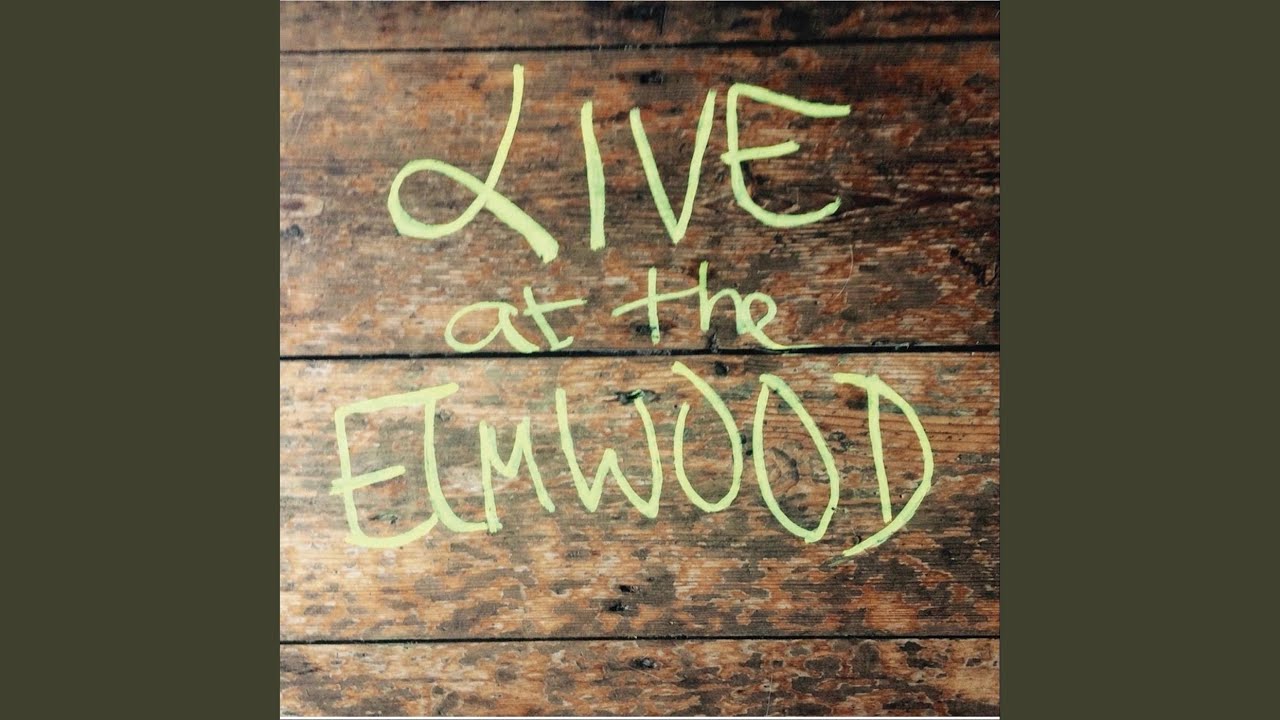 LIVE
at the
ELMWOOD